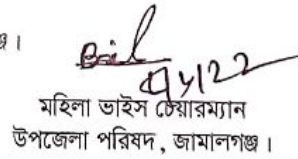 ঞ্জ।
মহিলা ভাইস চেয়ারম্যান
উপজেলা পরিষদ, জামালগঞ্জ।